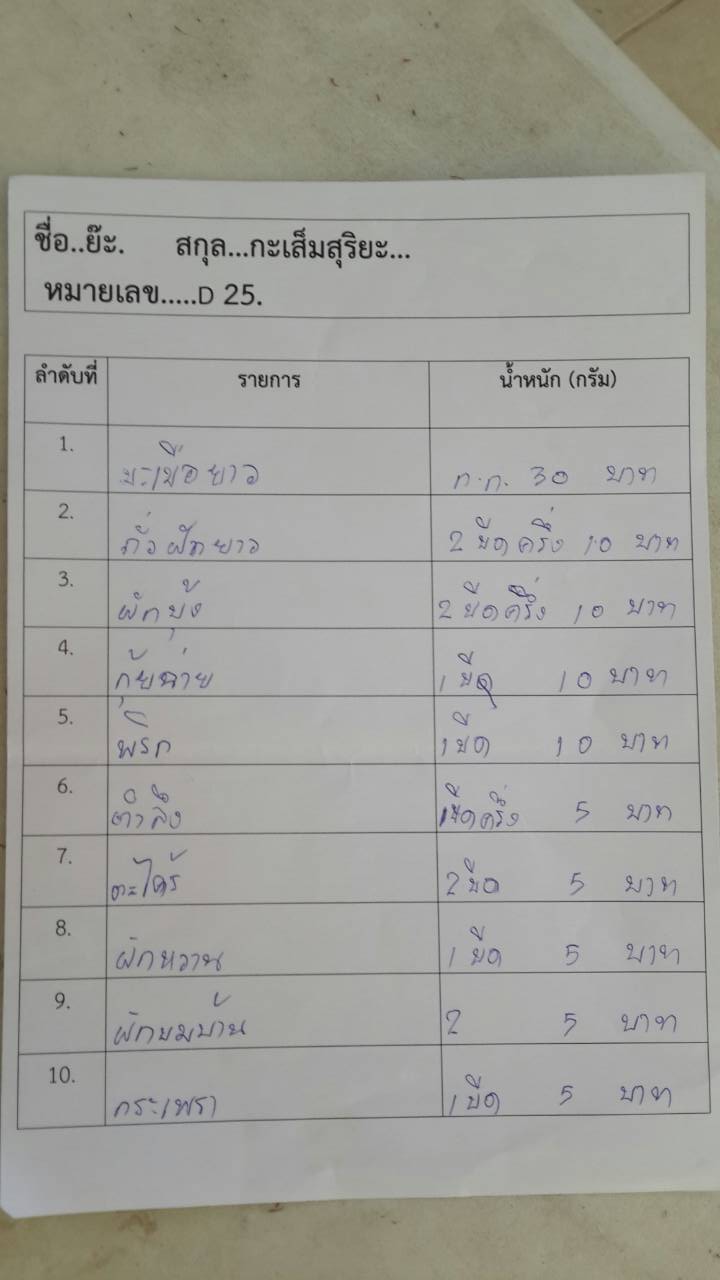 ชื่อ..ย๊ะ. สกุล...กะเส็มสุริยะ...
หมายเลข.....D 25.
ลำดับที่ รายการ น้ำหนัก (กรัม)
1. มะเขือยาว ก.ก. 30 บาท
2. ถั่วฝักยาว 2 ขีดครึ่ง 10 บาท
3. ผักบุ้ง 2 ขีดครึ่ง 10 บาท
4. กุ้ยฉ่าย 1 ขีด 10 บาท
5. พริก 1 ขีด 10 บาท
6. ตำลึง 1 ขีดครึ่ง 5 บาท
7. ตะไคร้ 2 ขีด 5 บาท
8. ผักหวาน 1 ขีด 5 บาท
9. ผักขมบ้าน 2 5 บาท
10. กระเพรา 1 ขีด 5 บาท